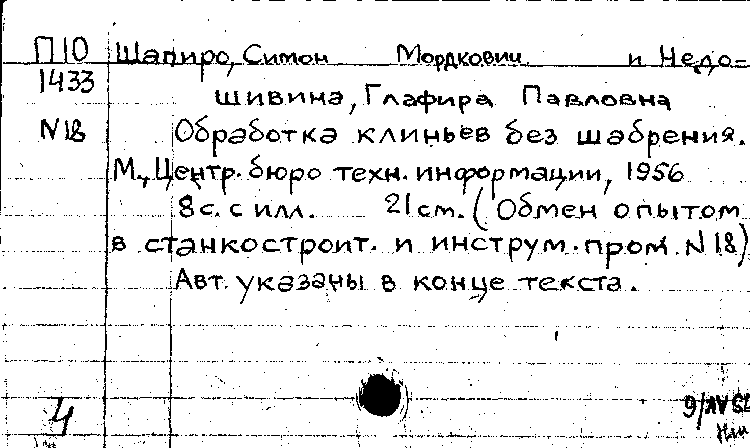 П10 Шапиро, Симон Мордкович и Недо-
1433
шивина, Глафира Павловна
N18 Обработка клиньев без шабрения.
М., Центр. бюро техн. информации, 1956
8 с. с илл. 21 см. (Обмен опытом
в станкостроит. и инструм. пром. N 18)
Авт. указаны в конце текста.
4